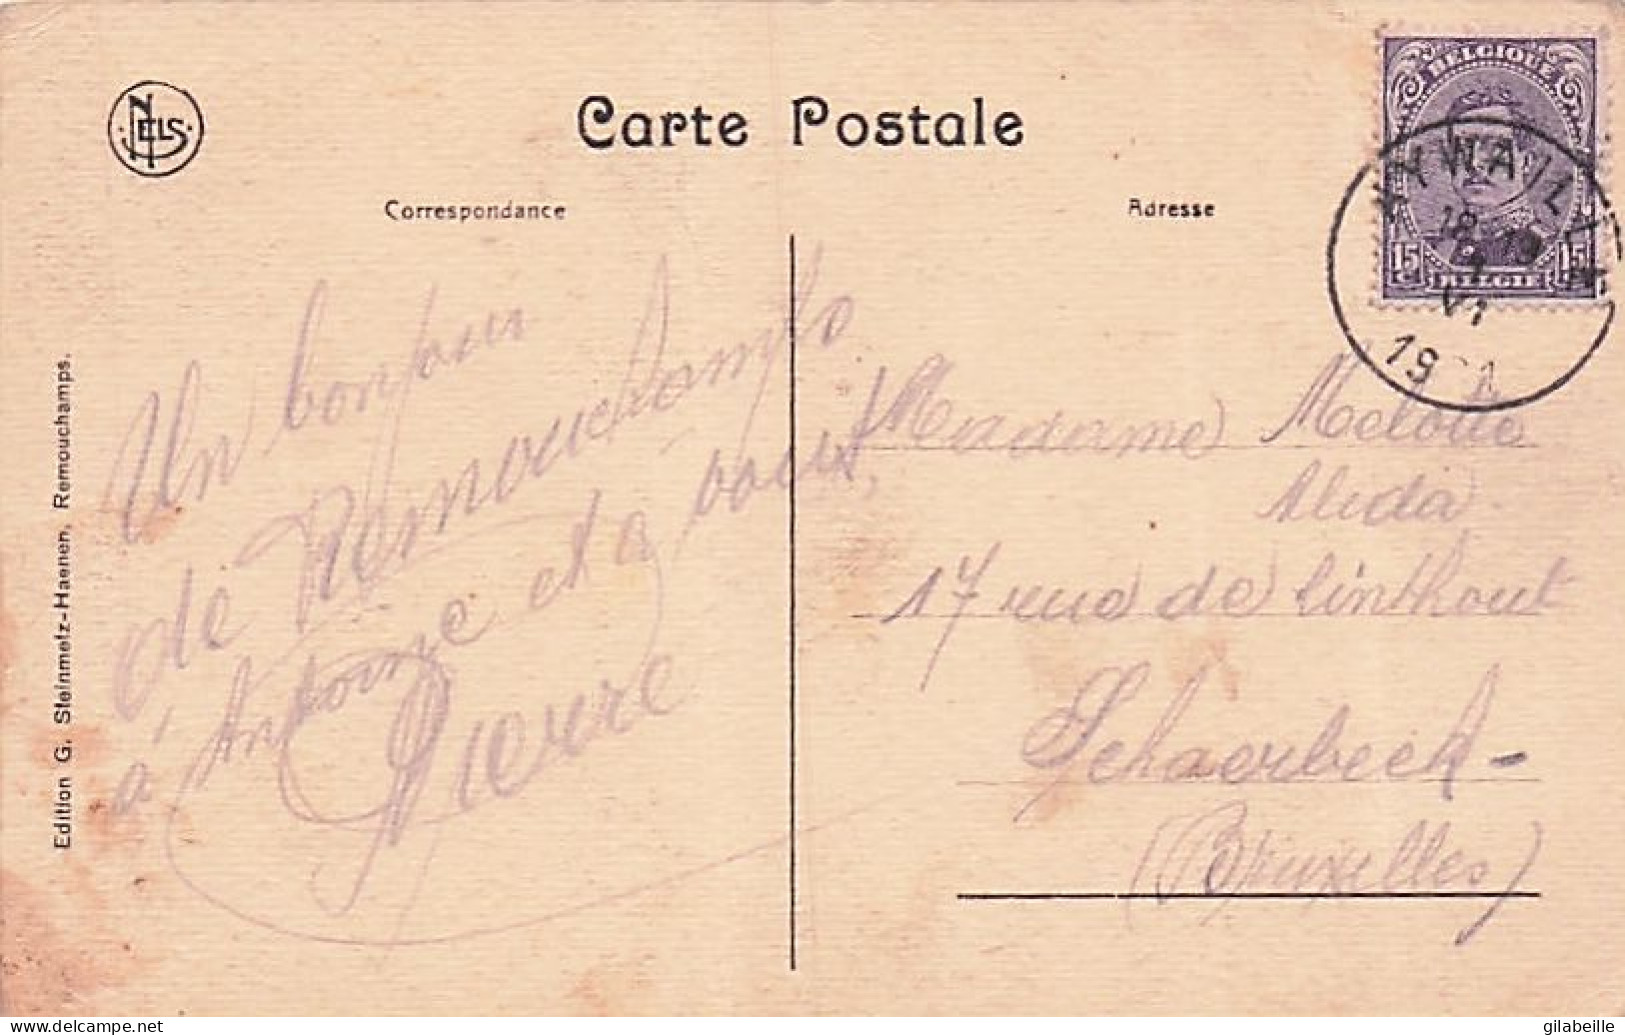 NELS
Carte Postale
Correspondance
Adresse
BELGIQUE
15 15
BELGIË
AYWAILLE
VI
Un bonjour
de Remouchamps
à Antoine et à vous,
Pierre
Madame Melotte
Alida
17 rue de Linthout
Schaerbeek -
(Bruxelles)
Edition G. Steinmetz-Haenen, Remouchamps.
delcampe.net
gilabeille